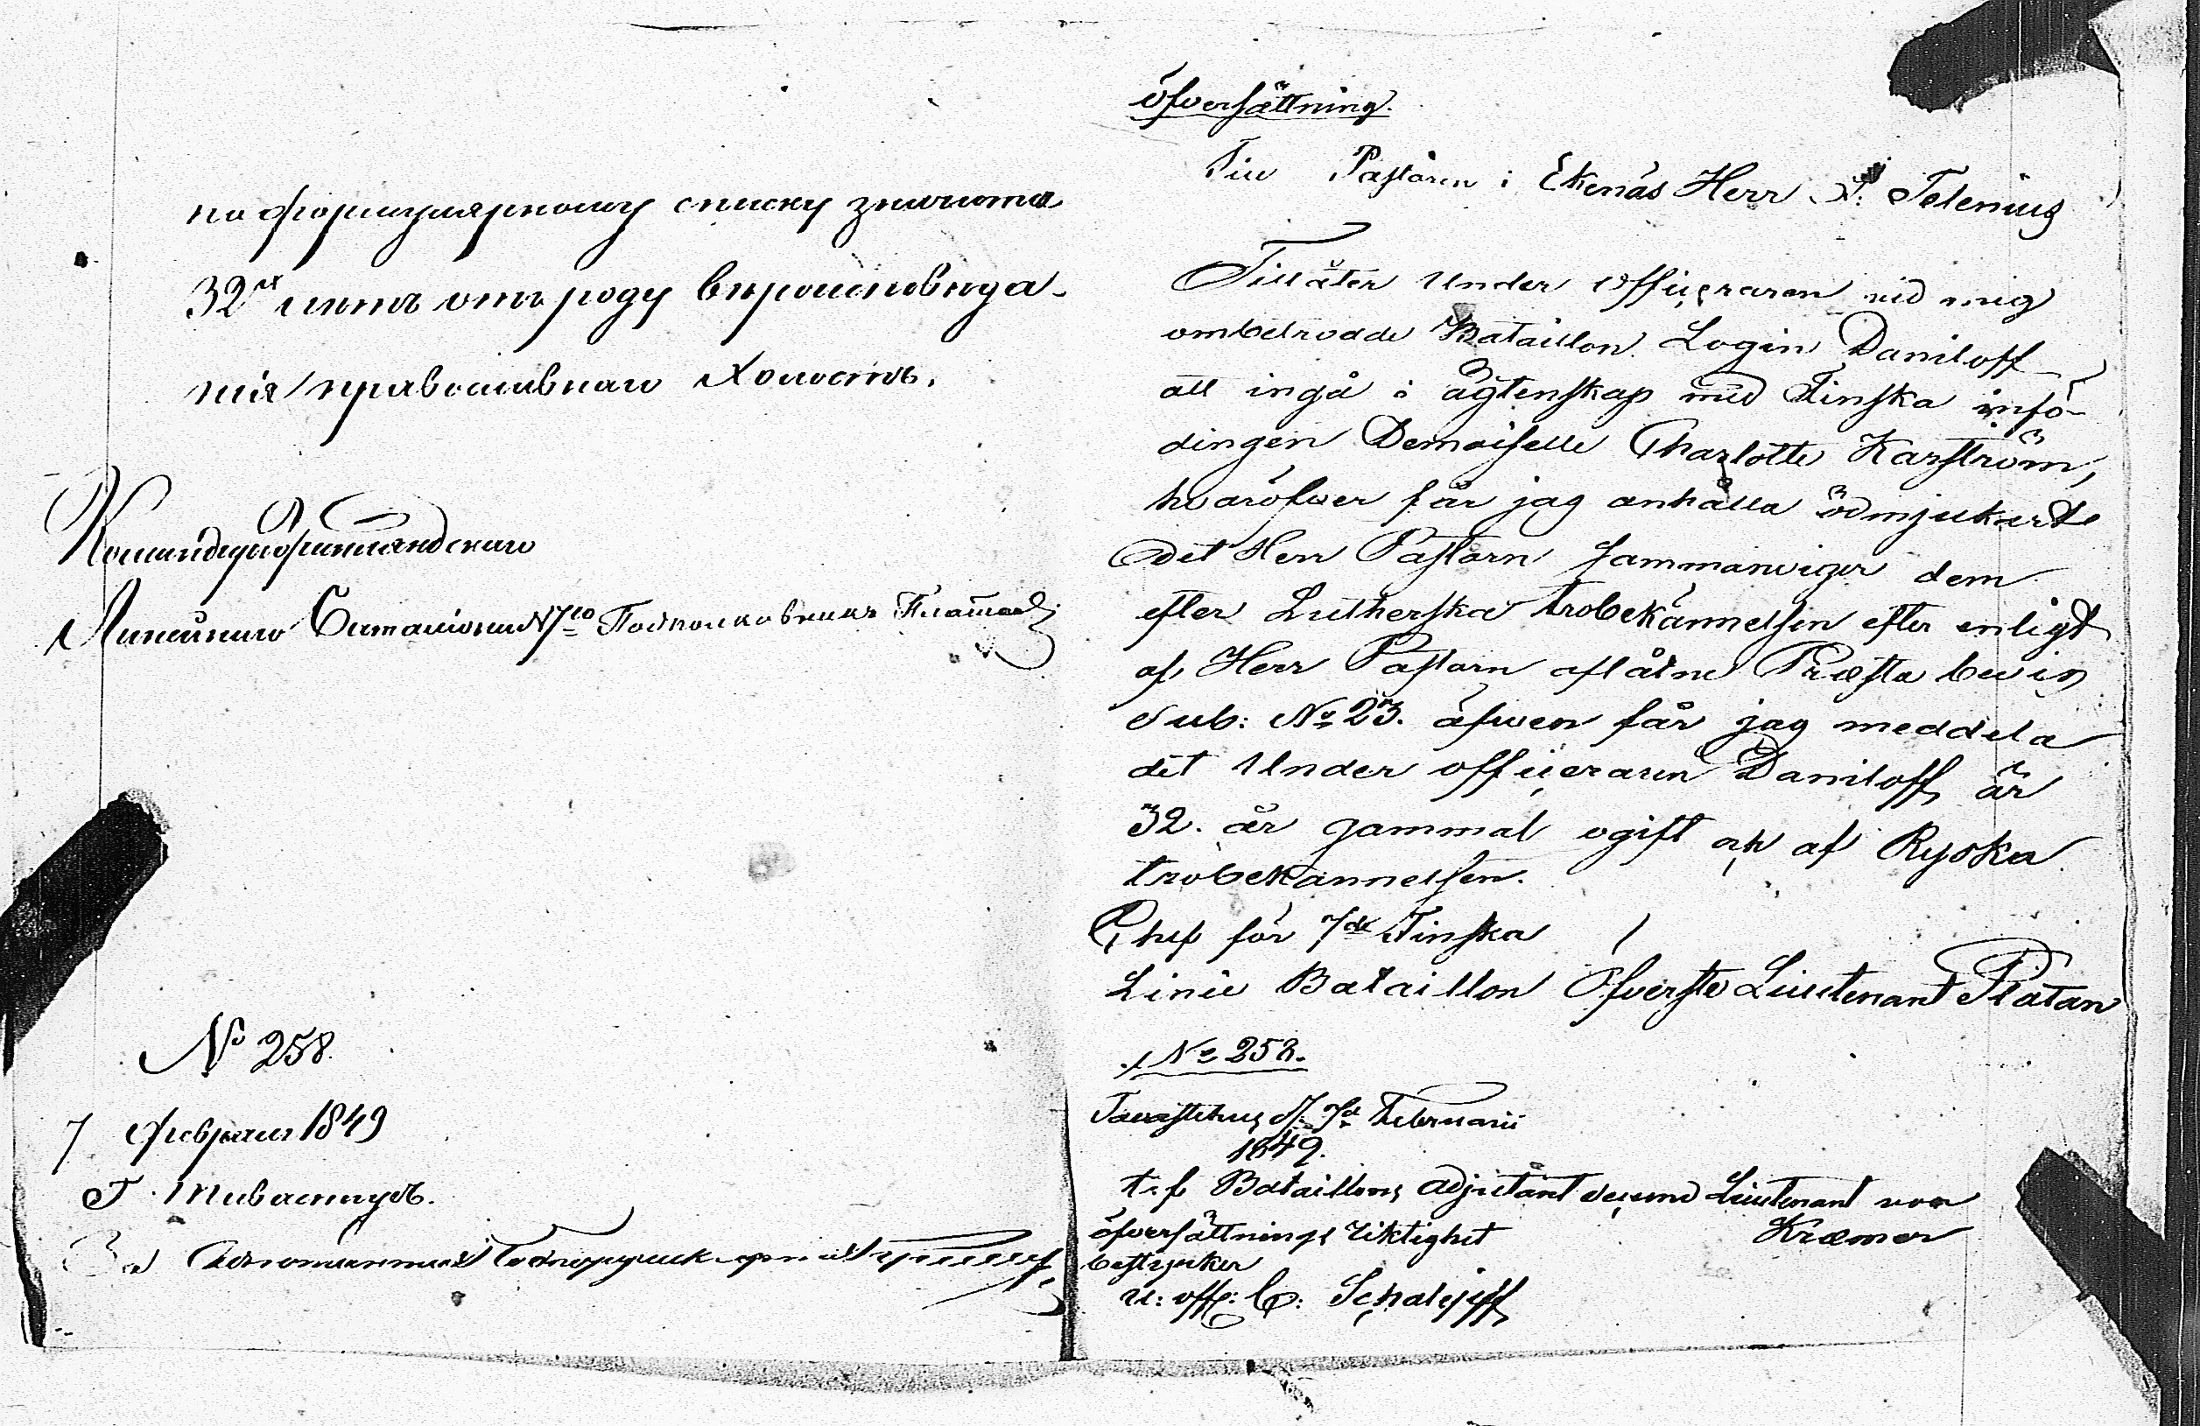 по формулярному списку значится
32х лѣтъ отъ роду вѣроисповѣда-
нія православнаго холостъ.
Командиръ Финляндскаго
Линейнаго Баталіона №7го Подполковникъ Платанъ
№ 258.
7 Февраля 1849
Г. Тавастгусъ.
За Адъютанта Подпоручикъ фонъ
öfversättning.
Till Pastorn i Ekenäs Herr Telenius
Tillåter Under Officeraren vid mig
ombetrodde Bataillon Login Daniloff
att ingå i ägtenskap med Finska infö-
dingen Demoiselle Charlotte Karström,
hvaröfwer får jag anhålla ödmjukast
det Herr Pastorn sammanviger dem
efter Lutherska trobekännelsen efter enligt
af Herr Pastorn aflåtne Præsta bevis
Sub: No 23. äfwen får jag meddela
det Under officeraren Daniloff är
32. år gammal ogift och af Ryska
trobekännelsen.
Chef för 7de Finska
Linie Bataillon Öfverste Lieutenant Platan
No 258.
Tavastehus d. 7de Februarii
1849.
t.f. Bataillons adjutant Second Lieutenant von
Kræmer
öfversättnings riktighet
bestyrker
U: off: C: Schalejeff